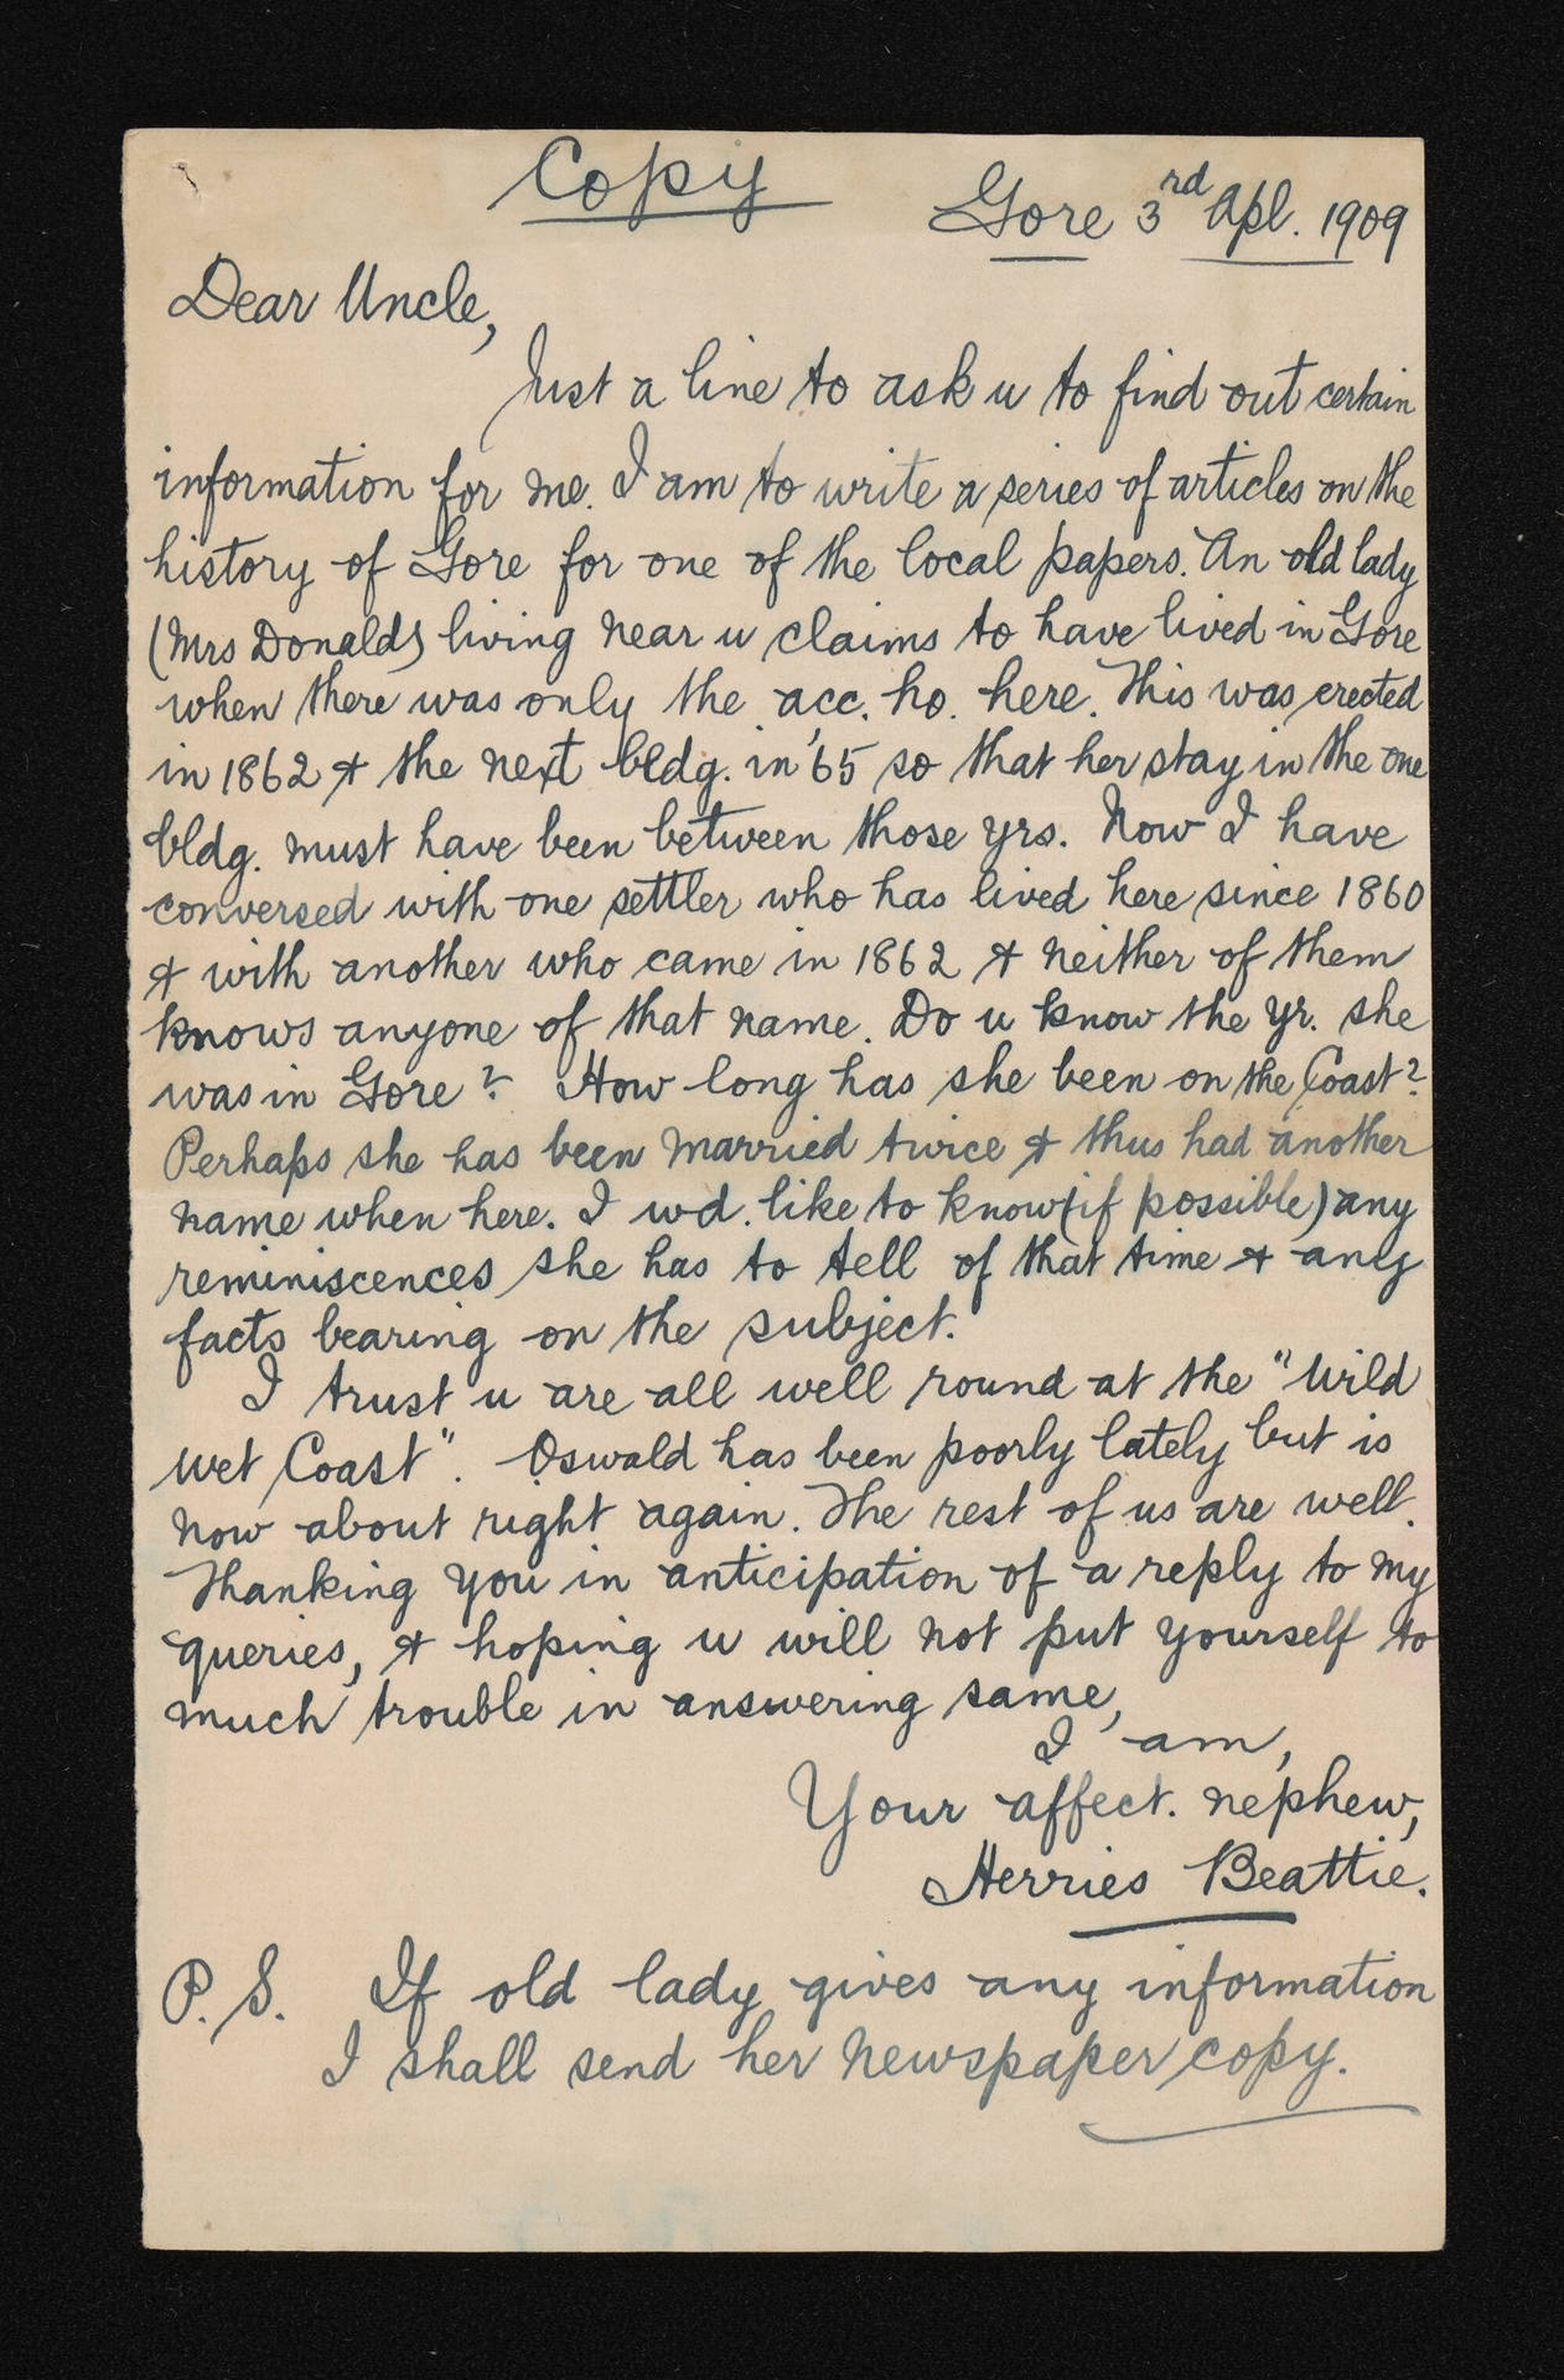 Copy
Gore 3rd Apl. 1909
Dear Uncle,
Just a line to ask u to find out certain
information for me. I am to write a series of articles on the
history of Gore for one of the local papers. An old lady
(Mrs Donald) living near u claims to have lived in Gore
when there was only the acc. ho. here. This was erected
in 1862 & the next bldg. in '65 so that her stay in the one
bldg. must have been between those yrs. Now I have
conversed with one settler who has lived here since 1860
& with another who came in 1862 & neither of them
knows anyone of that name. Do u know the yr. she
was in Gore? How long has she been on the Coast?
Perhaps she has been married twice & thus had another
name when here. I wd. like to know (if possible) any
reminiscences she has to tell of that time & any
facts bearing on the subject.
I trust u are all well round at the "Wild
Wet Coast". Oswald has been poorly lately but is
now about right again. The rest of us are well.
Thanking you in anticipation of a reply to my
queries, & hoping u will not put yourself to
much trouble in answering same,
I am,
Your affect. nephew,
Herries Beattie.
P.S. If old lady gives any information
I shall send her newspaper copy.